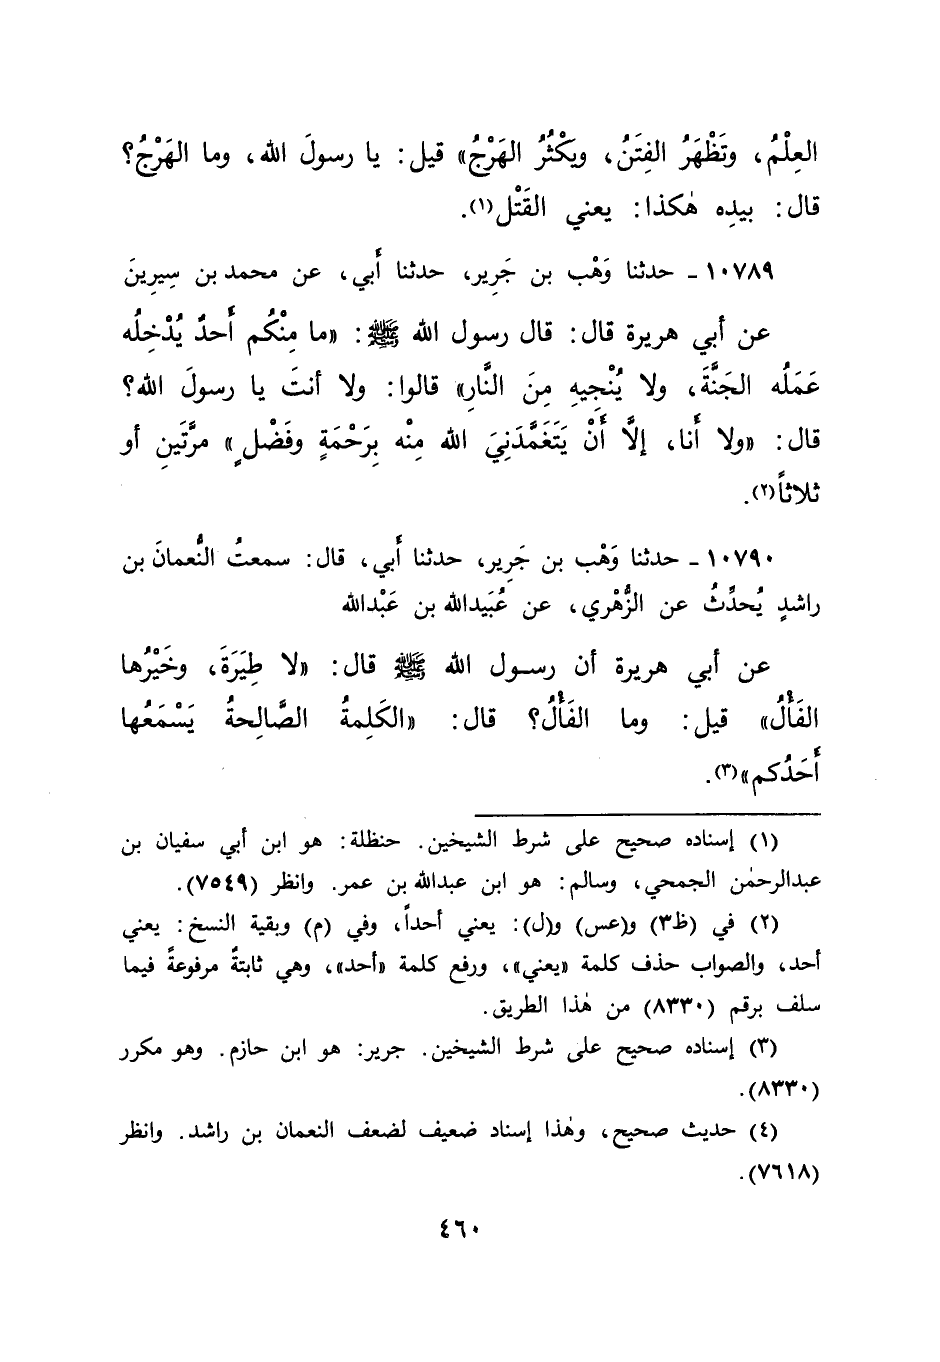 العِلْمُ، وتَظْهَرُ الفِتَنُ، ويَكْثُرُ الهَرْجُ» قيل: يا رسولَ الله، وما الهَرْجُ؟
قال: بيدِه هٰكذا: يعني القَتْل(١).
١٠٧٨٩ - حدثنا وَهْب بن جَرِير، حدثنا أَبي، عن محمد بن سِيرِينَ
عن أبي هريرة قال: قال رسول الله ﷺ: «ما مِنْكُم أَحدٌ يُدْخِلُه
عَمَلُه الجَنَّةَ، ولا يُنْجِيهِ مِنَ النَّارِ» قالوا: ولا أنتَ يا رسولَ الله؟
قال: «ولا أَنا، إلَّا أَنْ يَتَغَمَّدَنِيَ الله مِنْه بِرَحْمَةٍ وفَضْلٍ» مرَّتَينِ أو
ثلاثاً(٢).
١٠٧٩٠ - حدثنا وَهْب بن جَرِير، حدثنا أَبي، قال: سمعتُ النُّعمانَ بن
راشدٍ يُحدِّثُ عن الزُّهْري، عن عُبَيدالله بن عَبْدالله
عن أبي هريرة أن رسول الله ﷺ قال: «لا طِيَرَةَ، وخَيْرُها
الفَأْلُ» قيل: وما الفَأْلُ؟ قال: «الكَلِمةُ الصَّالِحةُ يَسْمَعُها
أَحَدُكم»(٣).
(١) إسناده صحيح على شرط الشيخين. حنظلة: هو ابن أبي سفيان بن
عبدالرحمٰن الجمحي، وسالم: هو ابن عبدالله بن عمر. وانظر (٧٥٤٩).
(٢) في (ظ٣) و(عس) و(ل): يعني أحداً، وفي (م) وبقية النسخ: يعني
أحد، والصواب حذف كلمة «يعني»، ورفع كلمة «أحد»، وهي ثابتةٌ مرفوعةً فيما
سلف برقم (٨٣٣٠) من هٰذا الطريق.
(٣) إسناده صحيح على شرط الشيخين. جرير: هو ابن حازم. وهو مكرر
(٨٣٣٠).
(٤) حديث صحيح، وهٰذا إسناد ضعيف لضعف النعمان بن راشد. وانظر
(٧٦١٨).
٤٦٠